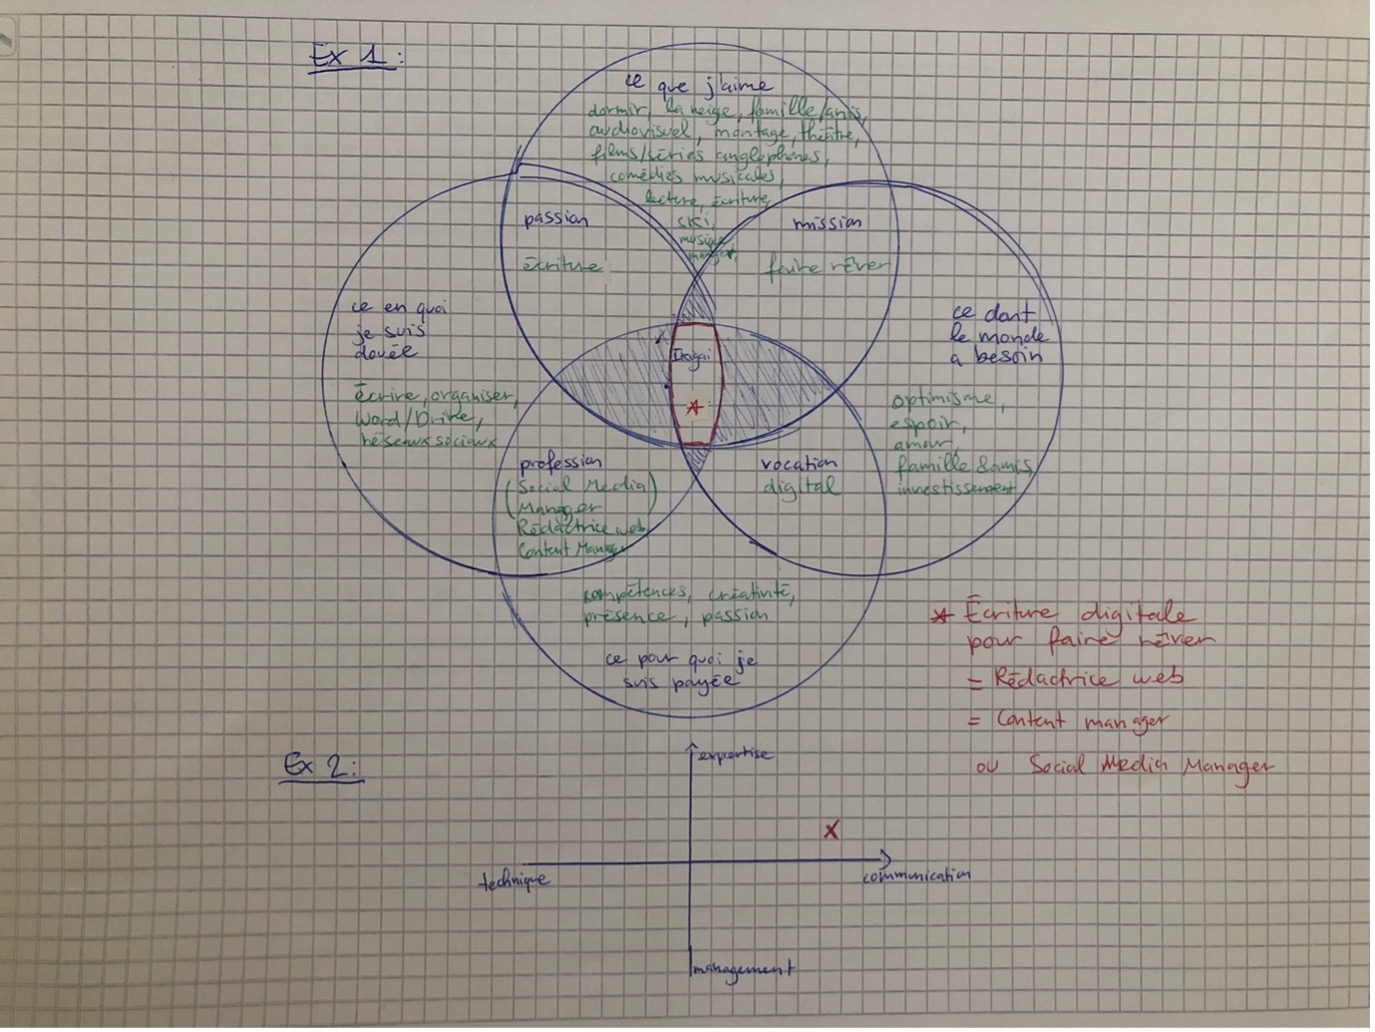 Ex 1 :
ce que j'aime
dormir, la neige, famille/amis,
audiovisuel, montage, théâtre,
films/séries anglophones,
comédies musicales,
lecture, écriture,
ski,
musique,
manger
passion
écriture
mission
faire rêver
ce en quoi
je suis
douée
écrire, organiser,
Word/Drive,
réseaux sociaux
Ikigai
*
ce dont
le monde
a besoin
optimisme,
espoir,
amour,
famille & amis,
investissement
profession
(Social Media)
(Manager
Rédactrice web
Content Manager
vocation
digital
compétences, créativité,
présence, passion
ce pour quoi je
suis payée
* Écriture digitale
pour faire rêver
= Rédactrice web
= Content manager
ou Social Media Manager
Ex 2 :
expertise
X
technique
communication
management